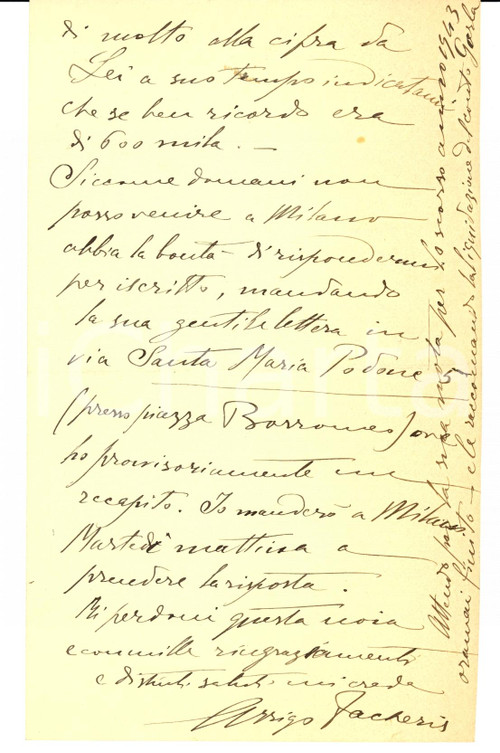 di molto alla cifra da
Lei a suo tempo indicatami
che se ben ricordo era
di 600 mila. —
Siccome domani non
posso venire a Milano
abbia la bontà di rispondermi
per iscritto, mandando
la sua gentile lettera in
via Santa Maria Podone 5
(presso piazza Borromeo) ove
ho provvisoriamente un
recapito. Io manderò a Milano
Martedì mattina a
prendere la risposta.
Mi perdoni questa noia
e con mille ringraziamenti
e distinti saluti mi creda
Arrigo Tacheris
Attendo poi la sua nota per lo scorso anno 1943
oramai finito – e le raccomando la liquidazione di sconto Gorla